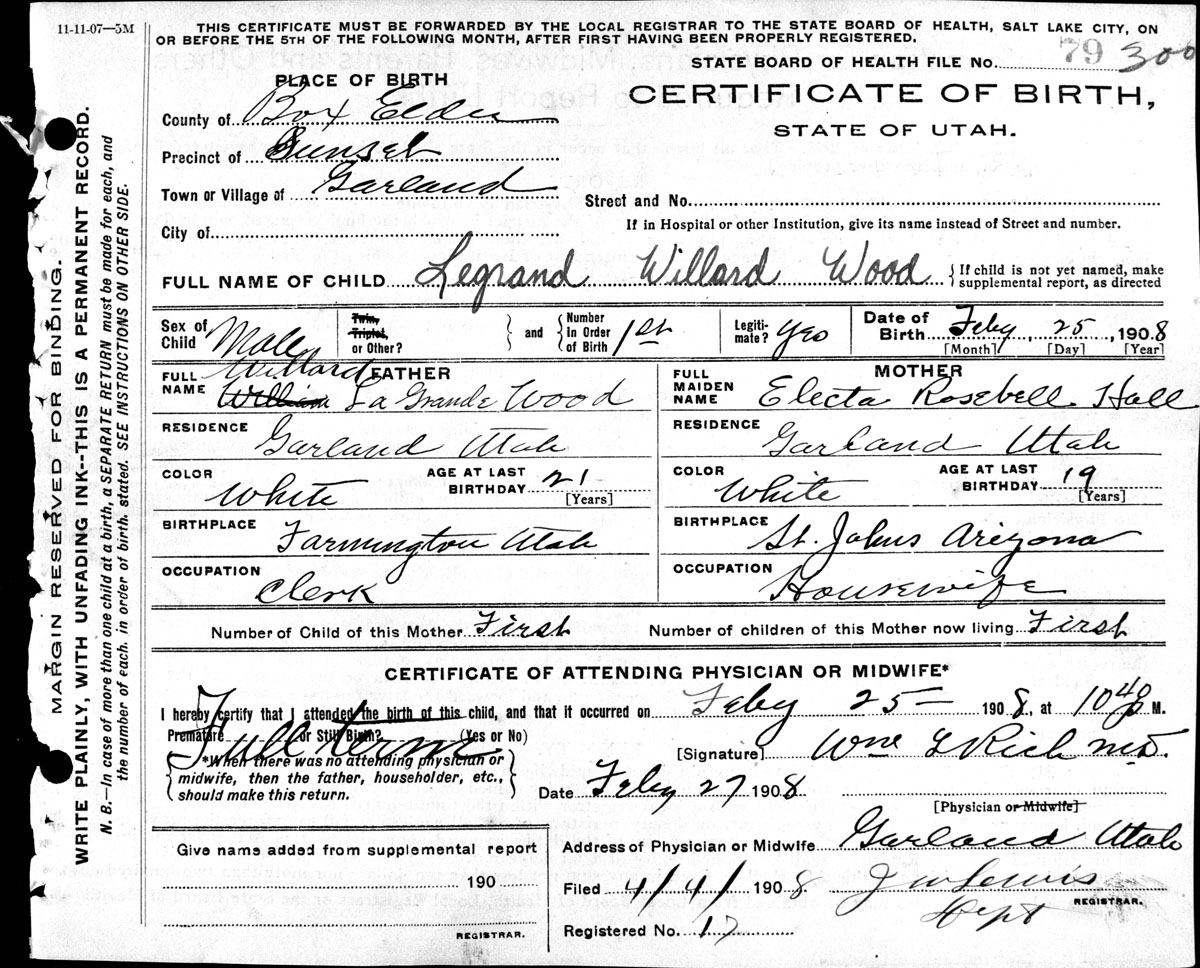 11-11-07—5M
THIS CERTIFICATE MUST BE FORWARDED BY THE LOCAL REGISTRAR TO THE STATE BOARD OF HEALTH, SALT LAKE CITY, ON
OR BEFORE THE 5TH OF THE FOLLOWING MONTH, AFTER FIRST HAVING BEEN PROPERLY REGISTERED.
STATE BOARD OF HEALTH FILE No. 79 300
PLACE OF BIRTH
CERTIFICATE OF BIRTH,
STATE OF UTAH.
County of Box Elder
Precinct of Sunset
Town or Village of Garland
Street and No.
City of
If in Hospital or other Institution, give its name instead of Street and number.
FULL NAME OF CHILD Legrand Willard Wood { If child is not yet named, make
supplemental report, as directed
Sex of Child Male
Twin, Triplet, or Other?
and { Number in Order of Birth 1st
Legitimate? Yes
Date of Birth Feby 25, 1908
[Month] [Day] [Year]
FATHER
FULL NAME Willard William La Grande Wood
MOTHER
FULL MAIDEN NAME Electa Rosebell Hall
RESIDENCE Garland Utah
RESIDENCE Garland Utah
COLOR White AGE AT LAST BIRTHDAY 21 [Years]
COLOR White AGE AT LAST BIRTHDAY 19 [Years]
BIRTHPLACE Farmington Utah
BIRTHPLACE St. Johns Arizona
OCCUPATION Clerk
OCCUPATION Housewife
Number of Child of this Mother First Number of children of this Mother now living First
CERTIFICATE OF ATTENDING PHYSICIAN OR MIDWIFE*
I hereby certify that I attended the birth of this child, and that it occurred on Feby 25 1908, at 10 M.
Premature or Still Birth? (Yes or No)
Full term
*When there was no attending physician or
midwife, then the father, householder, etc.,
should make this return.
[Signature] Wm L Rich MD.
Date Feby 27 1908
[Physician or Midwife]
Give name added from supplemental report
190
REGISTRAR.
Address of Physician or Midwife Garland Utah
Filed 4/4/ 1908 J W Lewis
REGISTRAR.
Dept
Registered No. 17
MARGIN RESERVED FOR BINDING.
WRITE PLAINLY, WITH UNFADING INK--THIS IS A PERMANENT RECORD.
N. B.—In case of more than one child at a birth, a SEPARATE RETURN must be made for each, and
the number of each, in order of birth, stated. SEE INSTRUCTIONS ON OTHER SIDE.